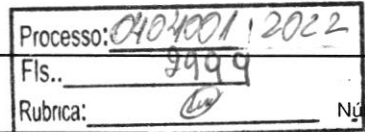 Processo: 0404001 / 2022
Fls.. 2999
Rubrica:
Nú